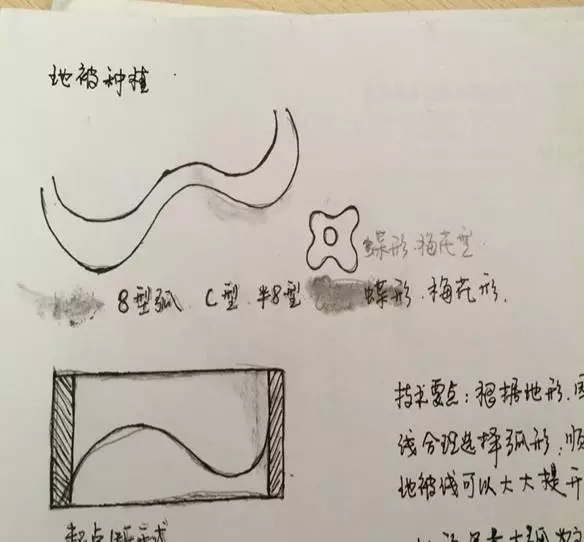 地被种植
蝶形.梅花型
8型弧、C型、半8型 蝶形、梅花形、
技术要点：根据地形、
线合理选择弧形，顺
地被线可以大大提升
起点